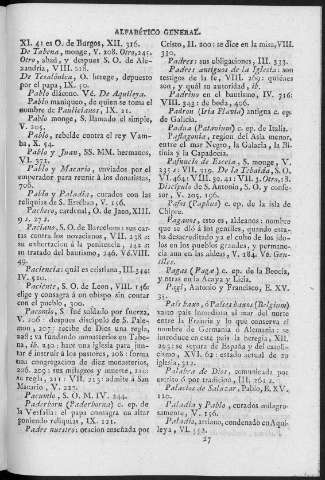 ALFABÉTICO GENERAL.
XI. 41 es O. de Burgos, XII. 316.
De Tabena, monge, V. 208. Otro, 245.
Otro, abad, y despues S. O. de Ale-
xandria, VIII. 218.
De Tesalónica, O. herege, depuesto
por el papa, IX. 50.
Pablo diácono. Vé. De Aquileya.
Pablo maniqueo, de quien se toma el
nombre de Paulicianos, IX. 21.
Pablo monge, S. llamado el simple,
V. 205.
Pablo, rebelde contra el rey Vam-
ba, X. 54.
Pablo y Juan, SS. MM. hermanos,
VI. 377.
Pablo y Macario, enviados por el
emperador para reunir á los donatistas,
706.
Pablo y Paladia, curados con las
reliquias de S. Esteban, V. 156.
Pacheco, cardenal, O. de Jaen, XIII.
Paciano, S. O. de Barcelona: sus car-
tas contra los novacianos, VII. 238 a:
su exhortacion á la penitencia, 242 a:
su tratado del bautismo, 246. Vé. VIII.
49.
Paciencia: quál es cristiana, III. 344:
IV. 520.
Paciente, S. O. de Leon, VIII. 146:
elige y consagra á un obispo sin contar
con el pueblo, 300.
Pacomio, S. fué soldado por fuerza,
V. 206: despues discípulo de S. Pale-
mon, 207: recibe de Dios una regla,
208: va fundando monasterios en Tabe-
na, ib. 230: hace una iglesia para jun-
tar é instruir á los pastores, 208: forma
una congregacion de diez monasterios,
206. 209: sus milagros y muerte,
su regla, 211: VII. 213: admite á San
Macario, V. 227.
Pacomio, S. O. M. IV. 244.
Paderborn (Paderborna) c. ep. de
la Vesfalia: el papa consagra un altar
poniendo reliquias, IX. 121.
Padre nuestro: oracion enseñada por
Cristo, II. 200: se dice en la misa, VIII.
330.
Padres: sus obligaciones, III. 333.
Padres antiguos de la Iglesia: son
testigos de la fe, VIII. 269: quiénes
son, y quál su autoridad, ib.
Padrino en el bautismo, IV. 316:
VIII. 343: de boda, 406.
Padron (Iria Flavia) antigua c. ep.
de Galicia.
Padua (Patavium) c. ep. de Italia.
Paflagonia, region del Asia menor,
entre el mar Negro, la Galacia, la Bi-
tinia y la Capadocia.
Pafnucio de Escecia, S. monge, V.
235: VII. 319. De la Tebaida, S. O.
VI. 464: VIII. 30. 41: VII. 3. Otro, S.
Discípulo de S. Antonio, S. O. y confe-
sor, V. 205, 196.
Pafos (Paphus) c. ep. de la isla de
Chipre.
Paganos, esto es, aldeanos: nombre
que se dió á los gentiles, quando esta-
ba desacreditado ya el culto de los ído-
los en los pueblos grandes, y permane-
cia aun en las aldeas, V. 284. Vé. Gen-
tiles.
Pagas (Pagæ) c. ep. de la Beocia,
y otras en la Acaya y Licia.
Pagi, Antonio y Francisco, E. XV.
35.
País baxo, ó Paises baxos (Belgium)
vasto pais inmediato al mar del norte
entre la Francia y lo que conserva el
nombre de Germania ó Alemania: se
introduce en este pais la heregía, XII.
263: se separa de España y del catoli-
cismo, XVI. 62: estado actual de su
iglesia, 312.
Palabra de Dios, comunicada por
escrito ó por tradicion, III. 261 a.
Palacios de Salazar, Pablo, E. XV.
120.
Paladia y Pablo, curados milagro-
samente, V. 156.
Paladio, arriano, condenado en Aqui-
leya, VI. 152.
27